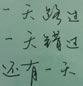 一天路过
一天错过
还有一天